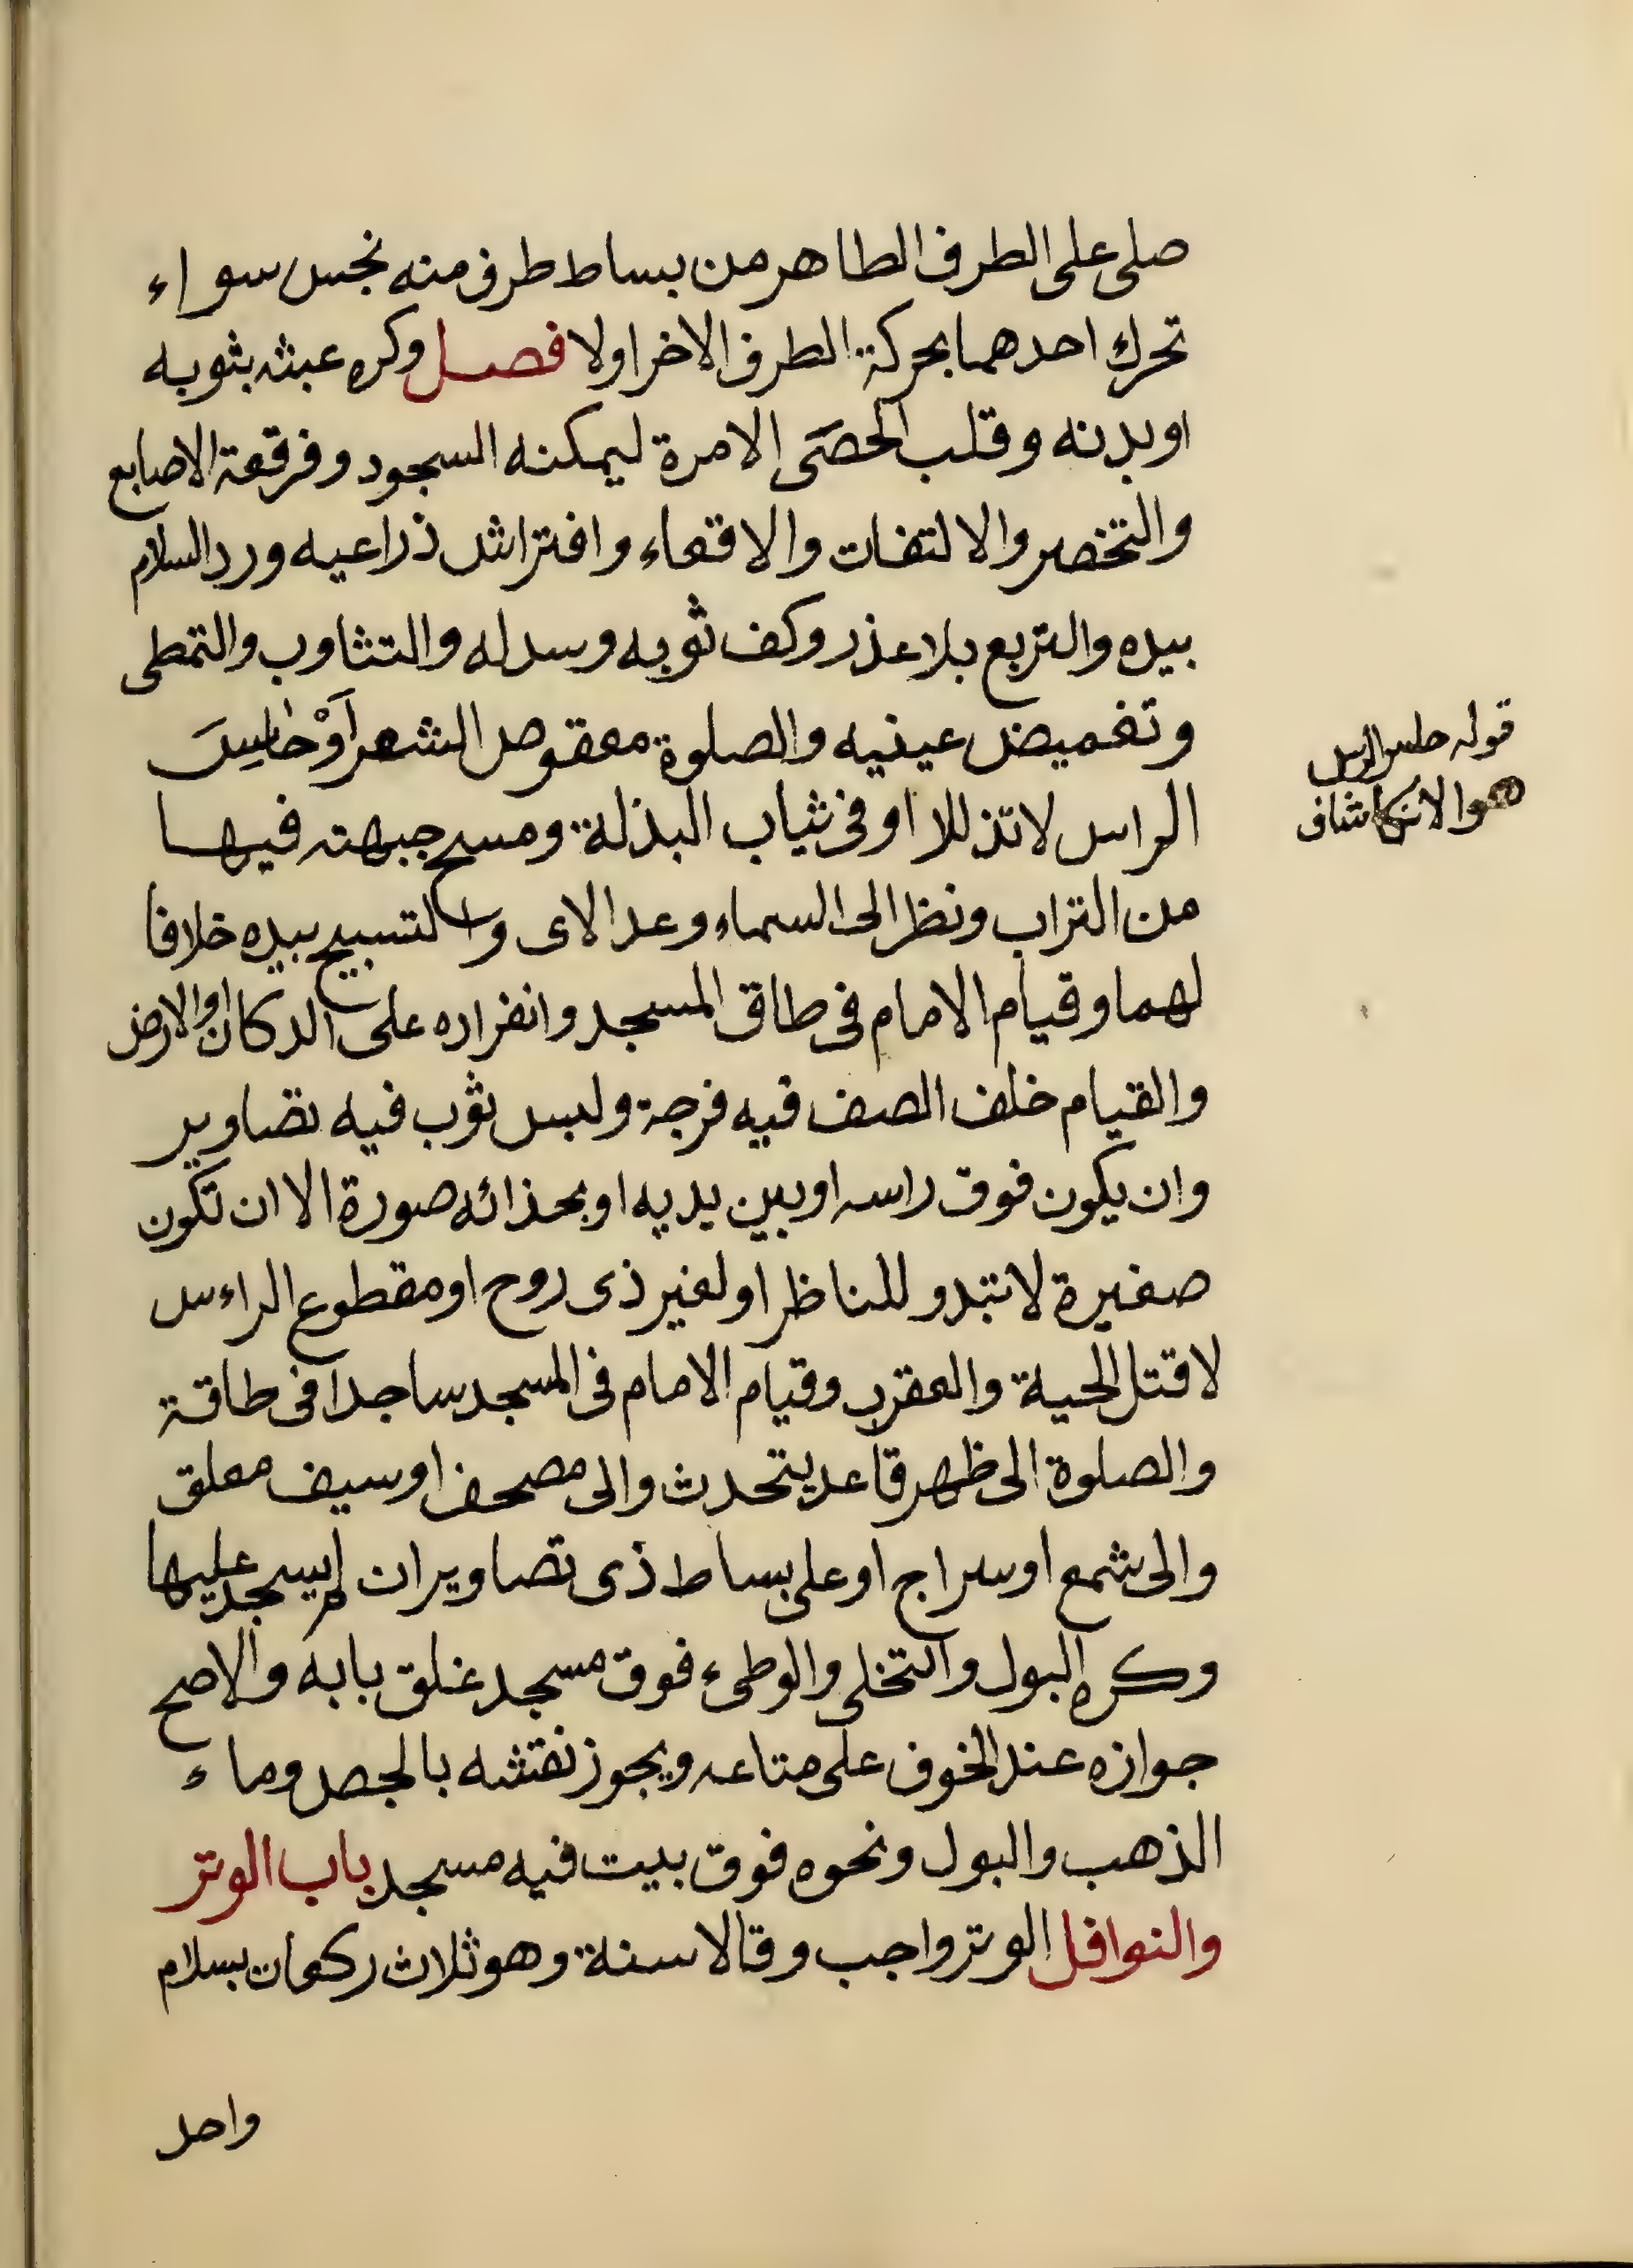 صلى على الطرف الطاهر من بساط طرف منه نجس سواء
تحرك احدهما بحركة الطرف الاخر اولا فصل وكره عبثه بثوبه
او بدنه وقلب الحصَى الا مرة ليمكنه السجود وفرقعة الاصابع
والتخصر والالتفات والاقعاء وافتراش ذراعيه ورد السلام
بيده والتربع بلا عذر وكف ثوبه وسدله والتثاوب والتمطى
وتغميض عينيه والصلوة معقوص الشعر أوْ حاسِرَ
الراس لا تذللا او فى ثياب البذلة ومسح جبهته فيها
من التراب ونظر الى السماء وعد الاى والتسبيح بيده خلافا
لهما وقيام الامام فى طاق المسجد وانفراده على الدكان او الارض
والقيام خلف الصف فيه فرجة ولبس ثوب فيه تصاوير
وان يكون فوق راسه او بين يديه او بحذائه صورة الا ان تكون
صغيرة لا تبدو للناظر او لغير ذى روح او مقطوع الراءس
لا قتل الحية والعقرب وقيام الامام فى المسجد ساجدا فى طاقة
والصلوة الى ظهر قاعد يتحدث والى مصحف او سيف معلق
والى شمع او سراج او على بساط ذى تصاوير ان لم يسجد عليها
وكره البول والتخلى والوطىء فوق مسجد غلق بابه والاصح
جوازه عند الخوف على متاعه ويجوز نقشه بالجص وماء
الذهب والبول ونحوه فوق بيت فيه مسجد باب الوتر
والنوافل الوتر واجب وقالا سنة وهو ثلاث ركعات بسلام
واحد
قوله حاسر الراس
هو الانكشاف